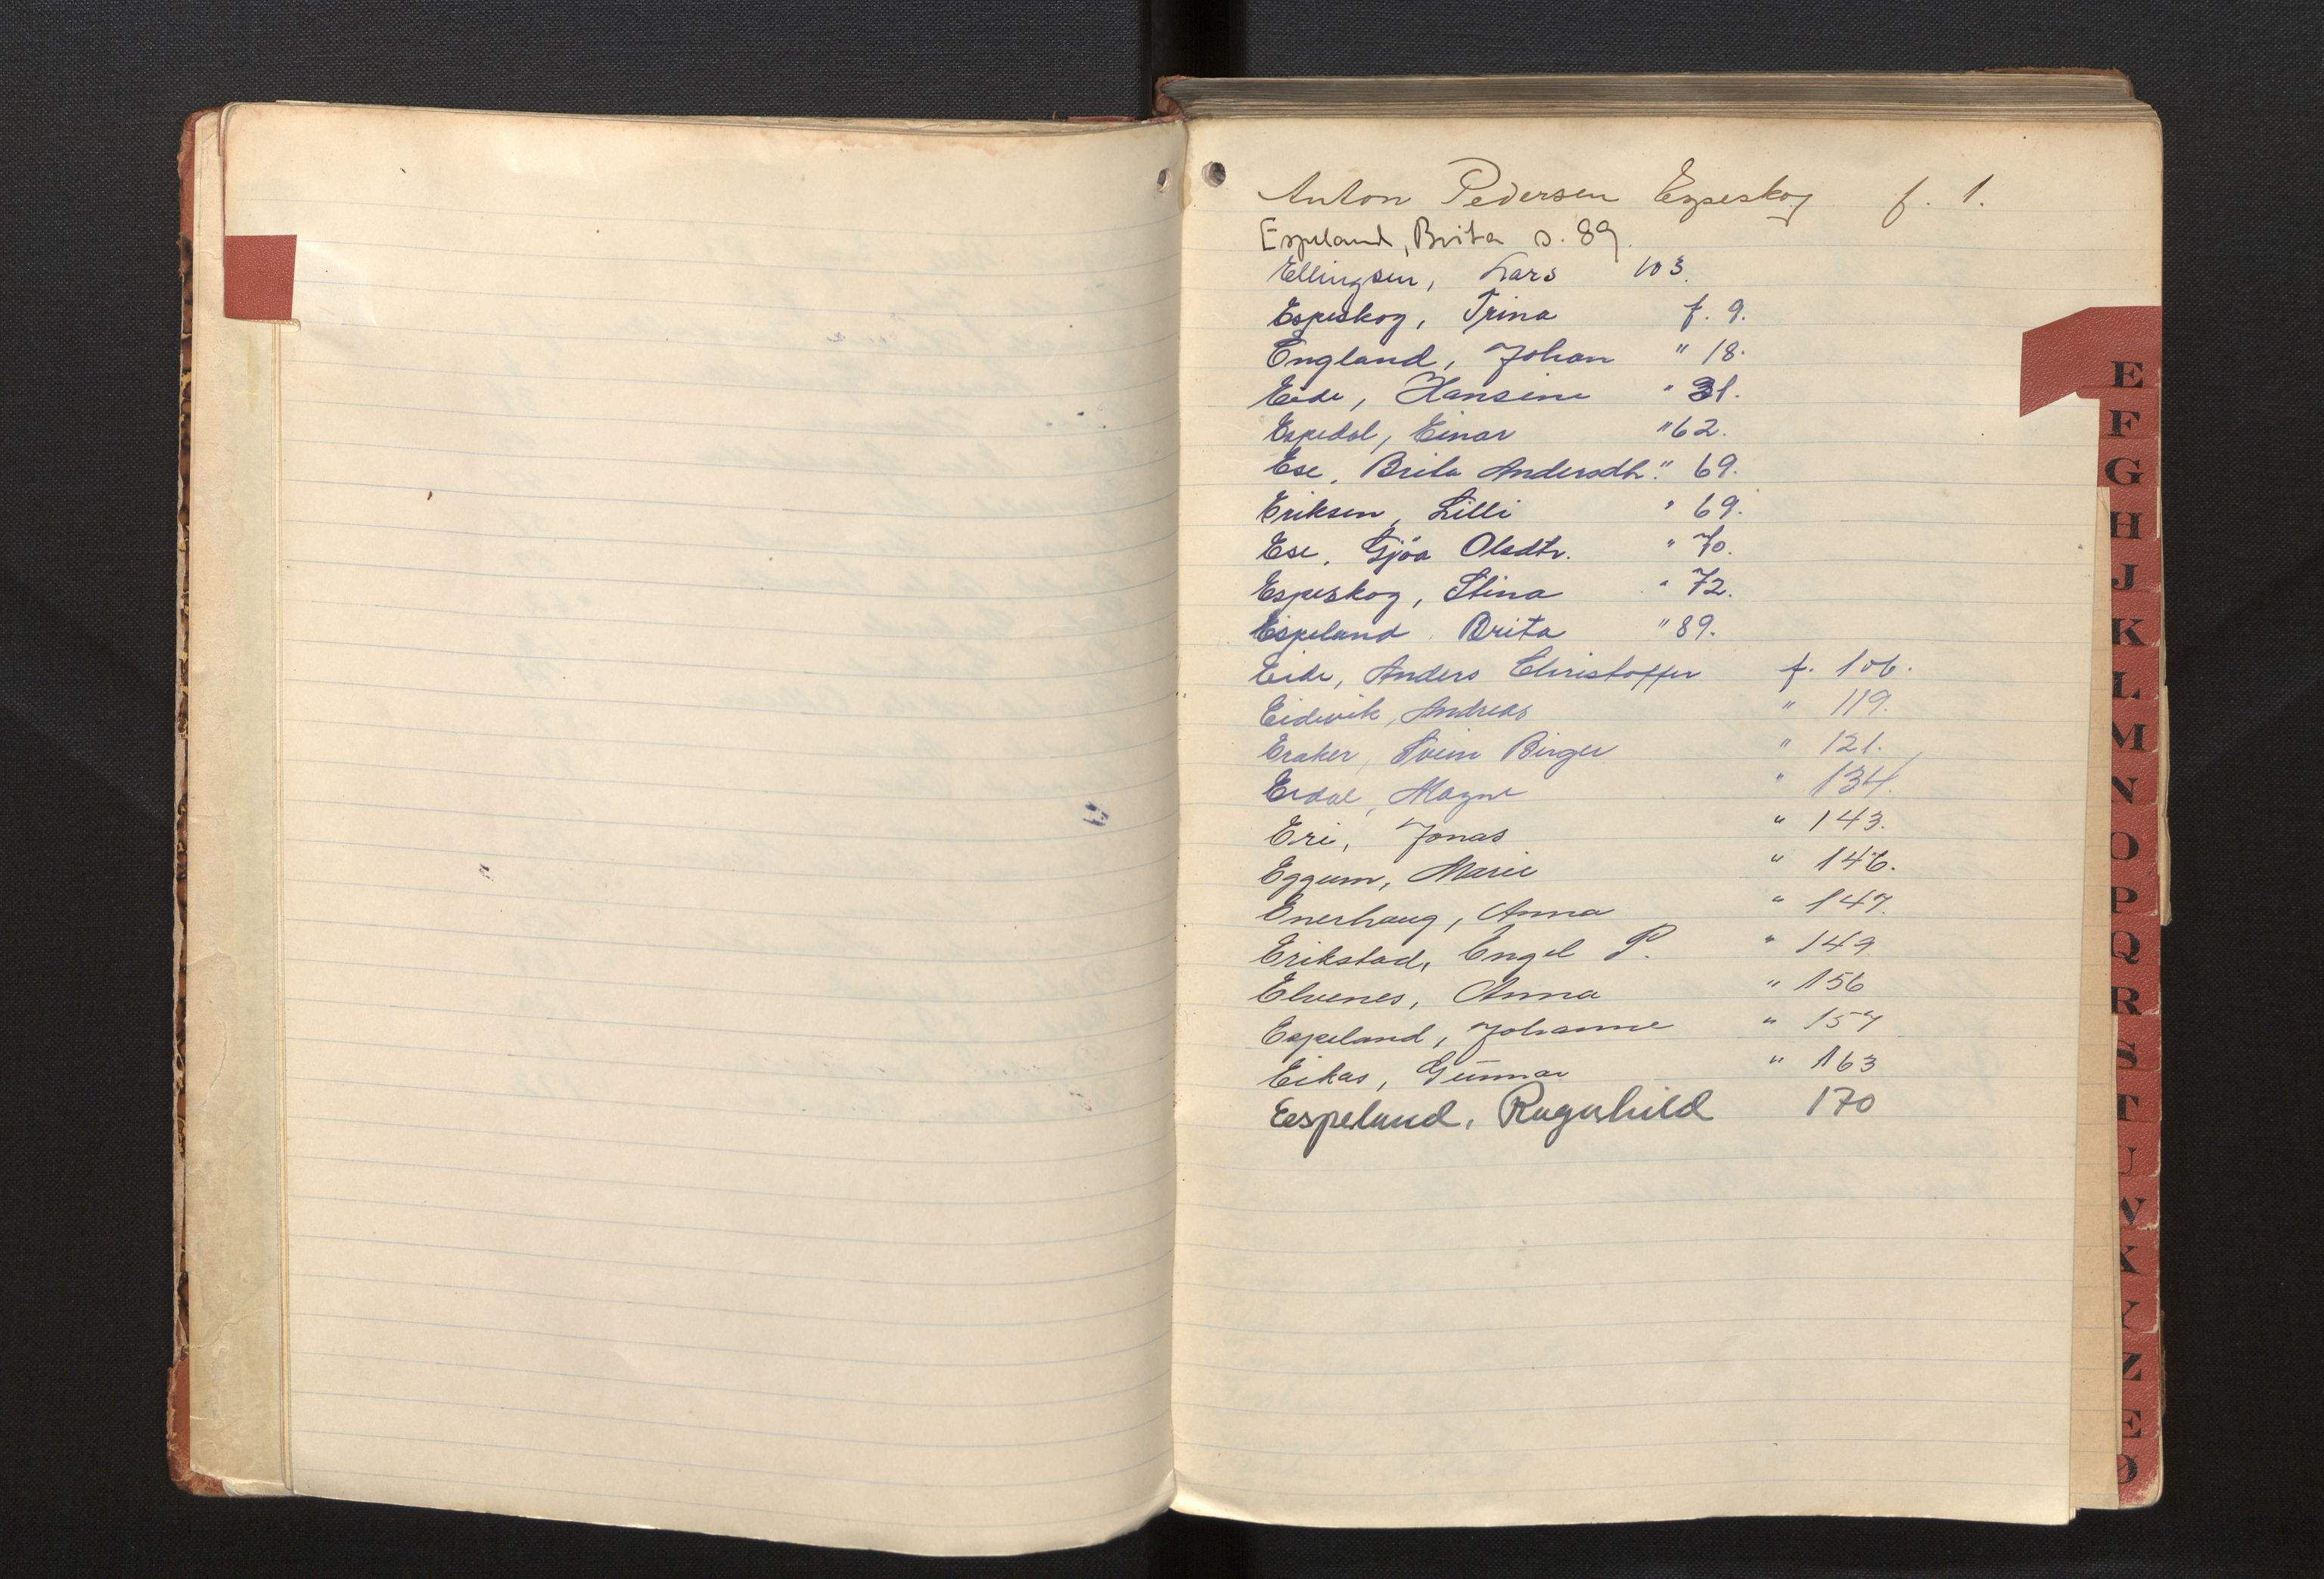 Anton Pedersen Espeskog f. 1.
Espeland, Brita s. 89.
Ellingsen, Lars 103.
Espeskog, Trina f. 9.
England, Johan " 18.
Eide, Hansine " 31.
Espedal, Einar " 62.
Ese, Brita Andersdtr. " 69.
Eriksen, Lilli " 69.
Ese, Gjöa Olsdtr. " 70.
Espeskog, Stina " 72.
Espeland, Brita " 89.
Eide, Anders Christoffer f. 106.
Eidevik, Andreas " 119.
Eraker, Svein Birger " 121.
Erdal, Magne " 134.
Eri, Jonas " 143.
Eggum, Marie " 146.
Enerhaug, Anna " 147.
Erikstad, Engel P. " 149
Elvenes, Anna " 156
Espeland, Johanne " 157
Eikas, Gunnar " 163
Espeland, Ragnhild 170
E
F
G
H
J
K
L
M
N
O
P
Q
R
S
T
U
V
X
Y
Z
Æ
Ø